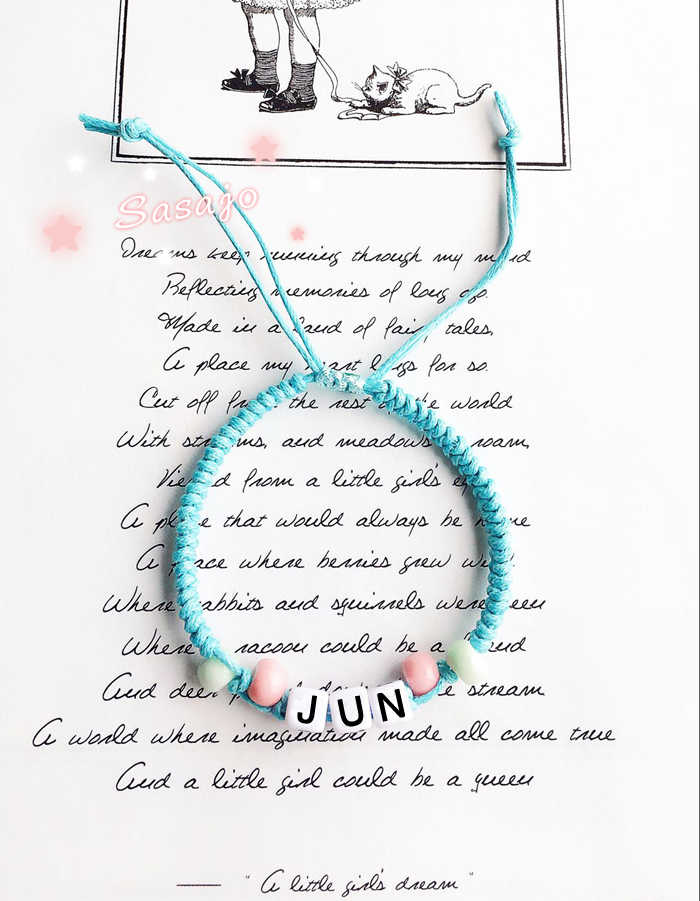 Sasajo
Dreams keep running through my mind
Reflecting memories of long ago.
Made in a land of fairy tales,
A place my heart longs for so.
Cut off from the rest of the world
With streams, and meadows to roam,
Viewed from a little girl's eyes
A place that would always be home
A place where berries grew wild
Where rabbits and squirrels were seen
Where a racoon could be a friend
And deer stream
A world where imagination made all come true
And a little girl could be a queen
JUN
"A little girl's dream"